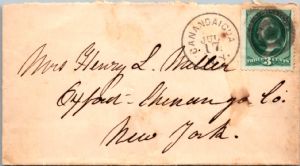 CANANDAIGUA
JUL
17
Mrs Henry L. Miller
Oxford - Chenango Co.
New York.
THREE 3 CENTS